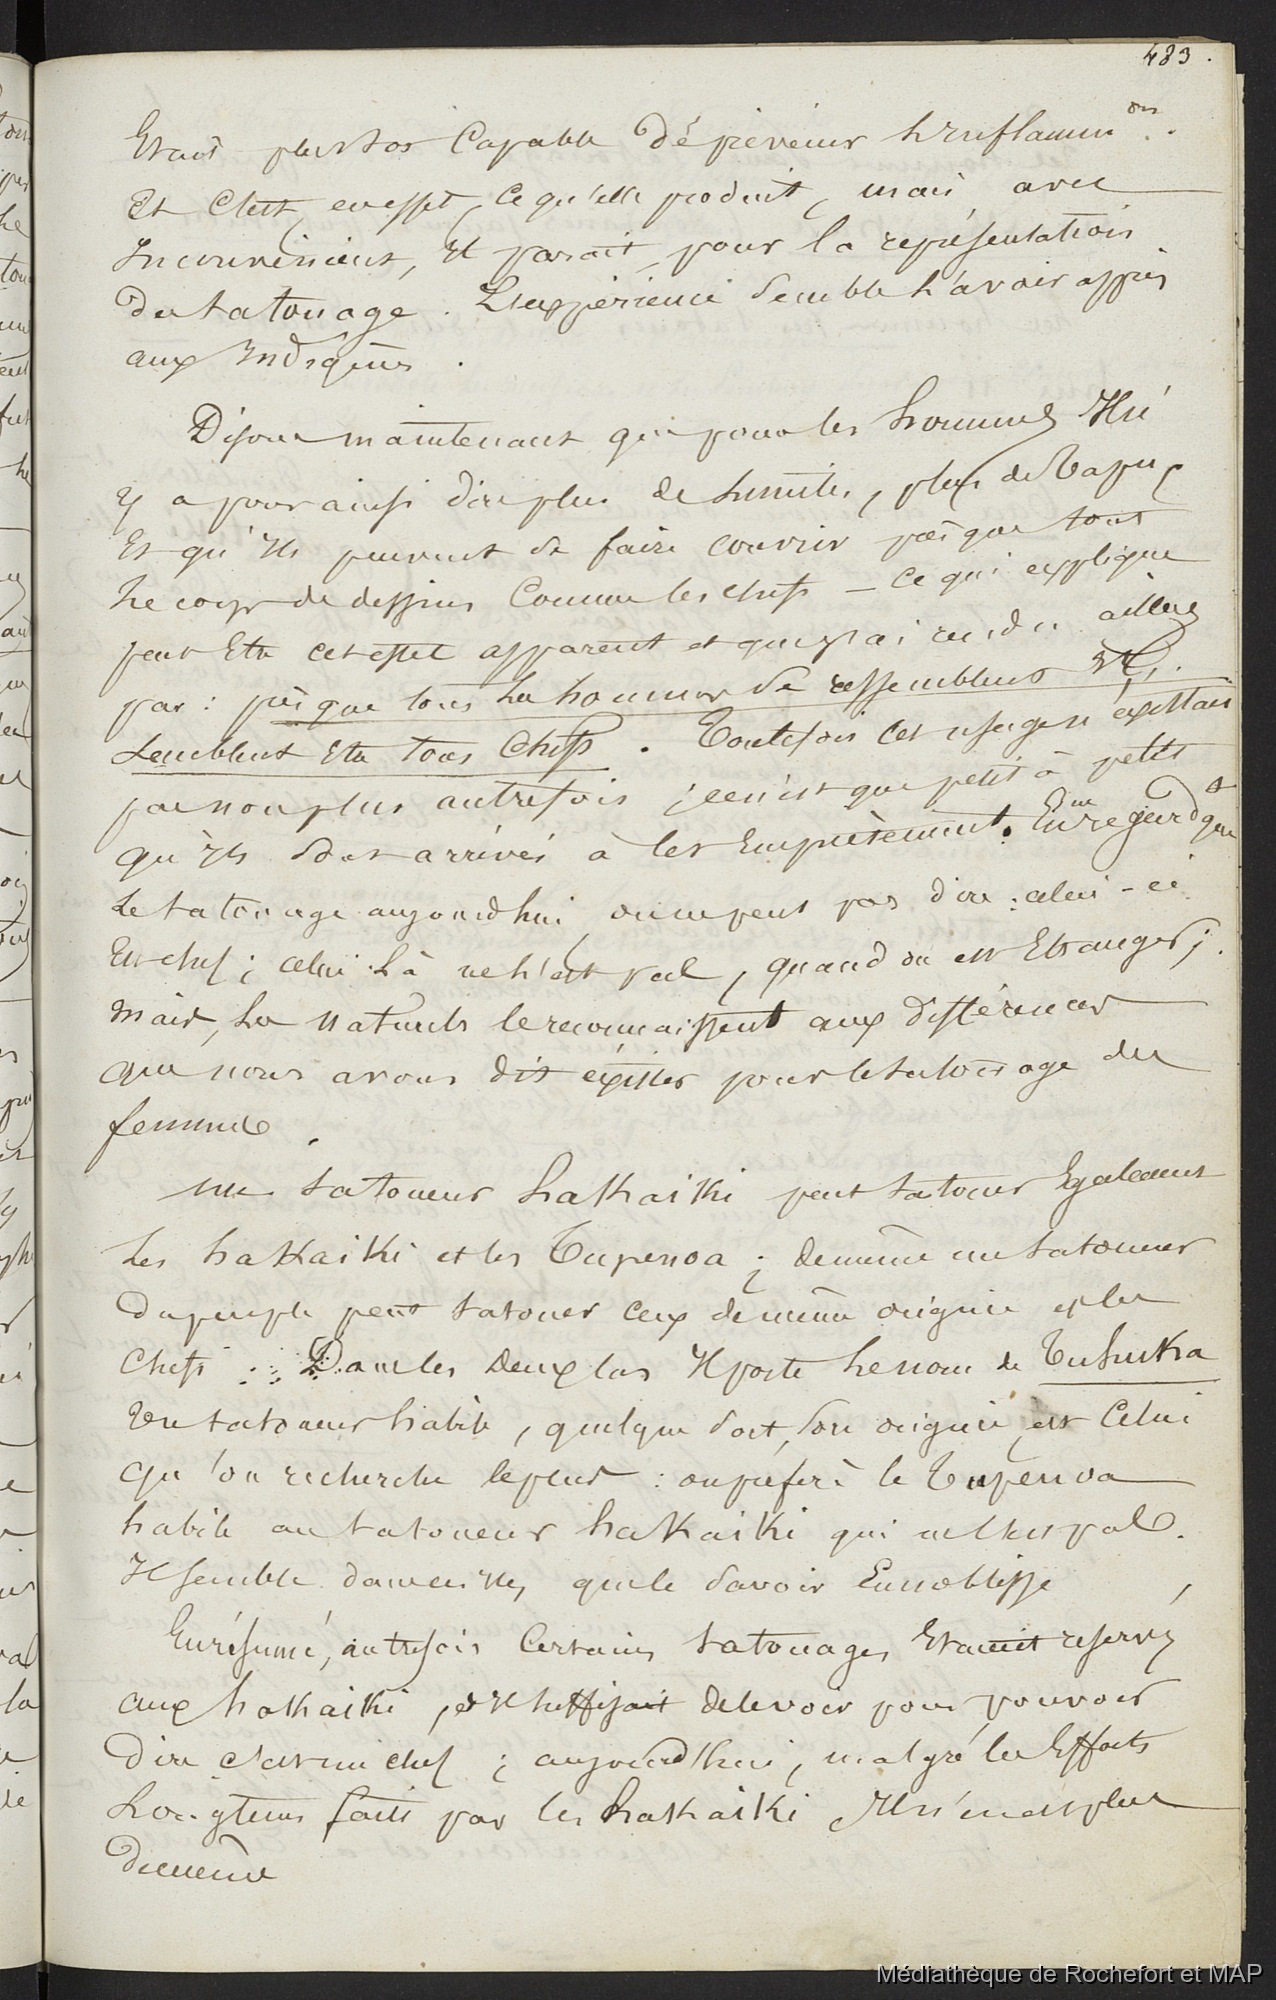 483.
Etait plustot Capable dé prévenir L'inflamm.on.
Et C'est, en effet, ce qu'elle produit, mais avec
Inconvénient, Il parait, pour la représentation
du tatouage. L'expérience semble L'avoir appris
aux Indigènes.
Disons maintenant que pour les hommes Il n'
y a pour ainsi dire plus de Limites, plus de Tapus
Et qu'ils peuvent se faire couvrir presque tout
Le corps de dessins Comme les chefs – ce qui explique
peut Etre cet effet apparent et que j'ai rendu ailleurs
par : presque tous Les hommes se ressemblent Et
semblent Etre tous Chefs. Toutefois cet usage n'existait
pas non plus autrefois ; ce n'est que petit à petit
qu'ils sont arrivés à cet Empiètement. En ne regardant que
Le tatouage aujourd'hui, on ne peut pas dire : celui-ci
Est chef ; celui Là ne L'est pas, quand on est Etranger ;
mais, Les naturels le reconnaissent aux différences
que nous avons dit exister pour le tatouage des
femmes.
un tatoueur hakaiki peut tatouer Egalement
Les hakaiki et les Tupenoa ; de même un tatoueur
du peuple peut tatouer ceux de même origine et les
Chefs. Dans les deux cas Il porte Le nom de Tuhuka
Un tatoueur habile, quelque soit son origine, est Celui
qu'on recherche le plus : on préfère le Tupenoa
habile au tatoueur hakaiki qui ne l'est pas.
Il semble, dans ces Iles, que le savoir Ennoblisse
En résumé, autrefois Certains tatouages Etaient réservés
aux hakaiki, et Il suffisait de les voir pour pouvoir
dire c'est un chef ; aujourd'hui, malgré les Efforts
Longtems faits par les hakaiki Il n'en est plus
de même
Médiathèque de Rochefort et MAP